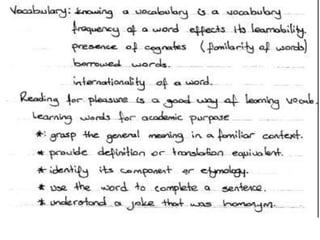 Vocabulary: knowing a vocabulary is a vocabulary
frequency of a word effects its learnability.
presence of cognates (familarity of words)
borrowed words.
internationality of a word.
Reading for pleasure is a good way of learning vocab.
Learning words for academic purpose
*: grasp the general meaning in a familiar context.
* provide definition or translation equivalent.
* identify its component or etymology.
* use the word to complete a sentence.
* understand a joke that was homonym.